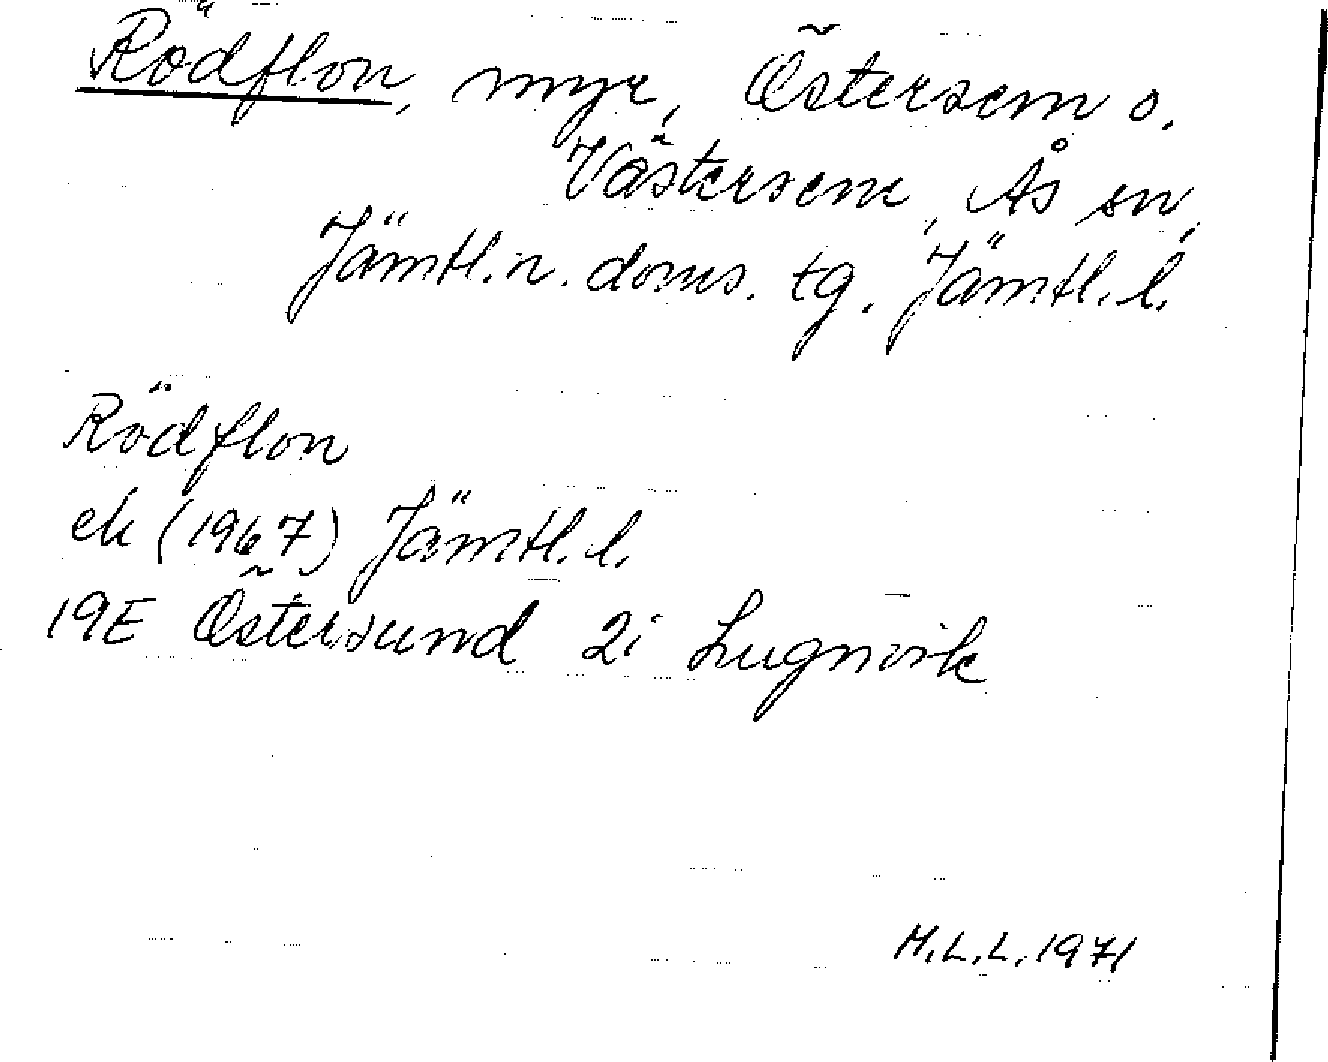 Rödflon, myr, Östersem o.
Västersem, Ås sn,
Jämtl. n. doms. tg. Jämtl. l.
Rödflon
ek (1967) Jämtl. l.
19E Östersund 2i Lugnvik
M.L.L. 1971